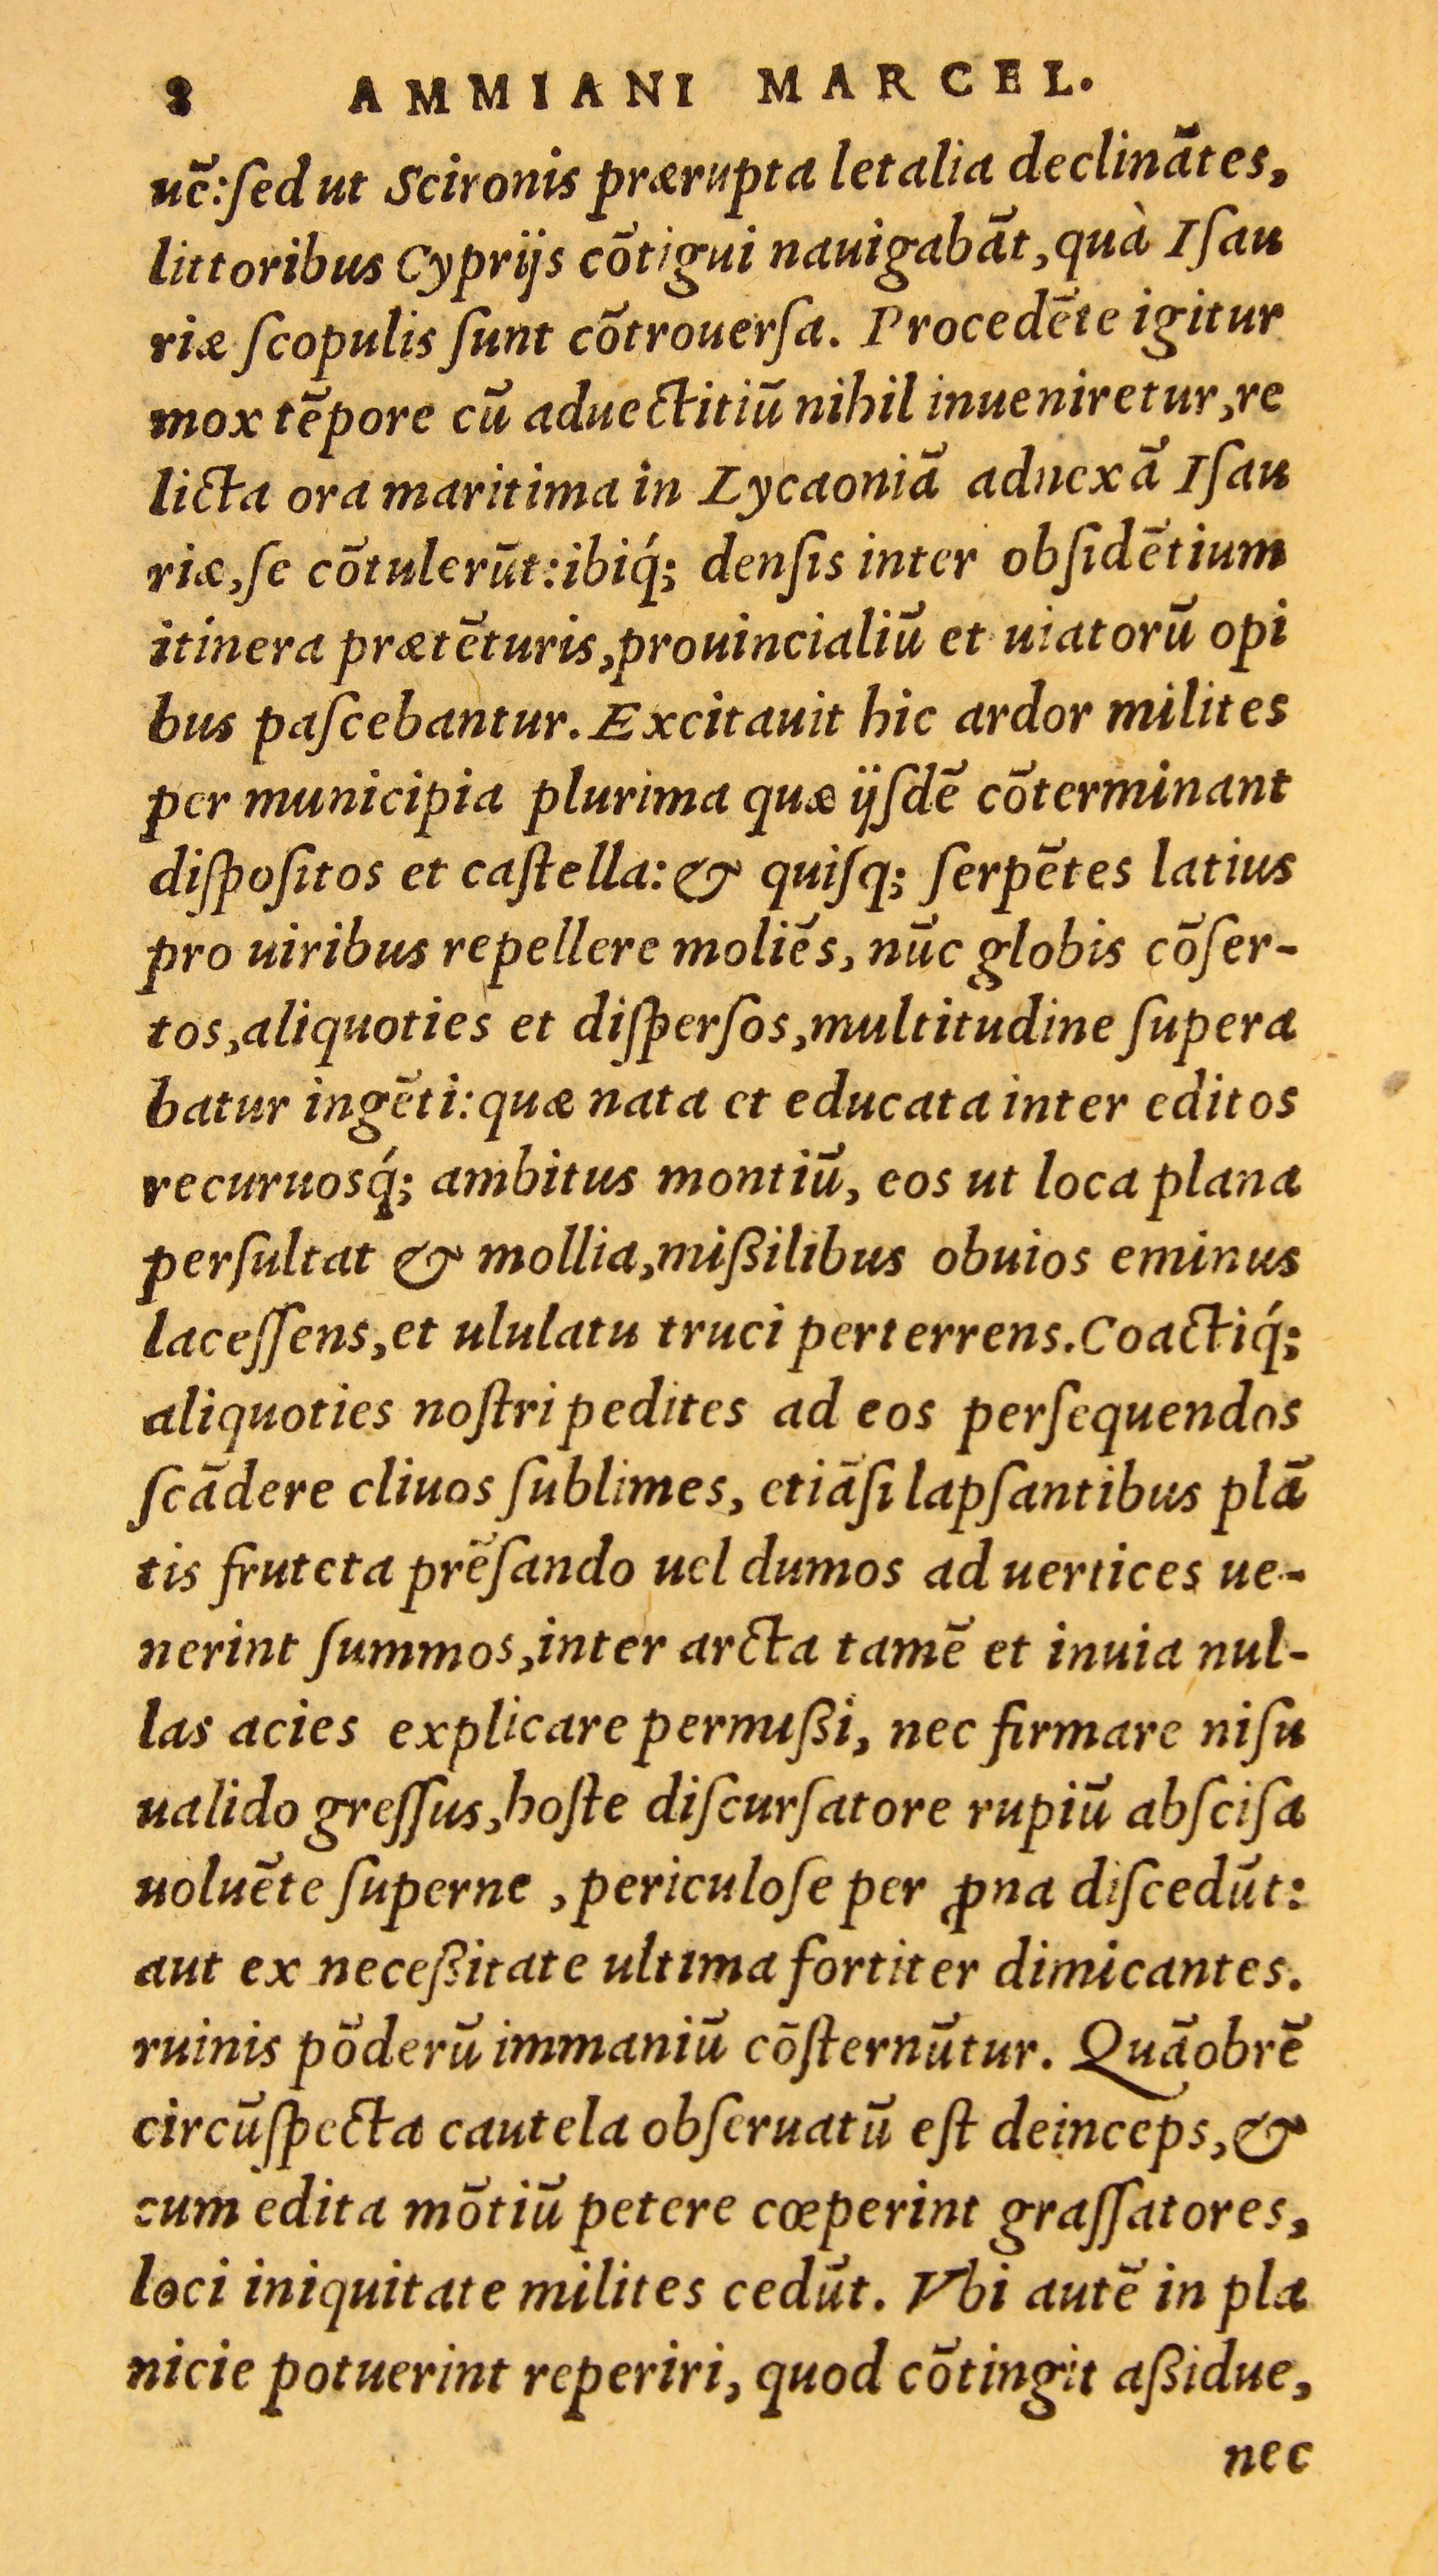 8 AMMIANI MARCEL.
uē:ſed ut Scironis prærupta letalia declinātes,
littoribus Cyprijs cōtigui nauigabāt,quà Iſau
riæ ſcopulis ſunt cōtrouerſa. Procedēte igitur
mox tēpore cū aduectitiū nihil inueniretur,re
licta ora maritima in Lycaoniā adnexā Iſau
riæ,ſe cōtulerūt:ibiq́; denſis inter obſidētium
itinera prætēturis,prouincialiū et uiatorū opi
bus paſcebantur. Excitauit hic ardor milites
per municipia plurima quæ ijſdē cōterminant
diſpoſitos et caſtella:& quiſq; ſerpētes latius
pro uiribus repellere moliēs, nūc globis cōſer-
tos,aliquoties et diſperſos,multitudine ſupera
batur ingēti:quæ nata et educata inter editos
recuruosq́; ambitus montiū, eos ut loca plana
perſultat & mollia,mißilibus obuios eminus
laceſſens,et ululatu truci perterrens.Coactiq́;
aliquoties noſtri pedites ad eos perſequendos
ſcādere cliuos ſublimes, etiāſi lapſantibus plā
tis fruteta prēſando uel dumos ad uertices ue-
nerint ſummos,inter arcta tamē et inuia nul-
las acies explicare permißi, nec firmare niſu
ualido greſſus,hoſte diſcurſatore rupiū abſciſa
uoluēte ſuperne , periculoſe per ꝓna diſcedūt:
aut ex neceßitate ultima fortiter dimicantes.
ruinis pōderū immaniū cōſternūtur. Quāobrē
circūſpecta cautela obſeruatū eſt deinceps,&
cum edita mōtiū petere cœperint graſſatores,
loci iniquitate milites cedūt. Vbi autē in pla
nicie potuerint reperiri, quod cōtingit aßidue,
nec